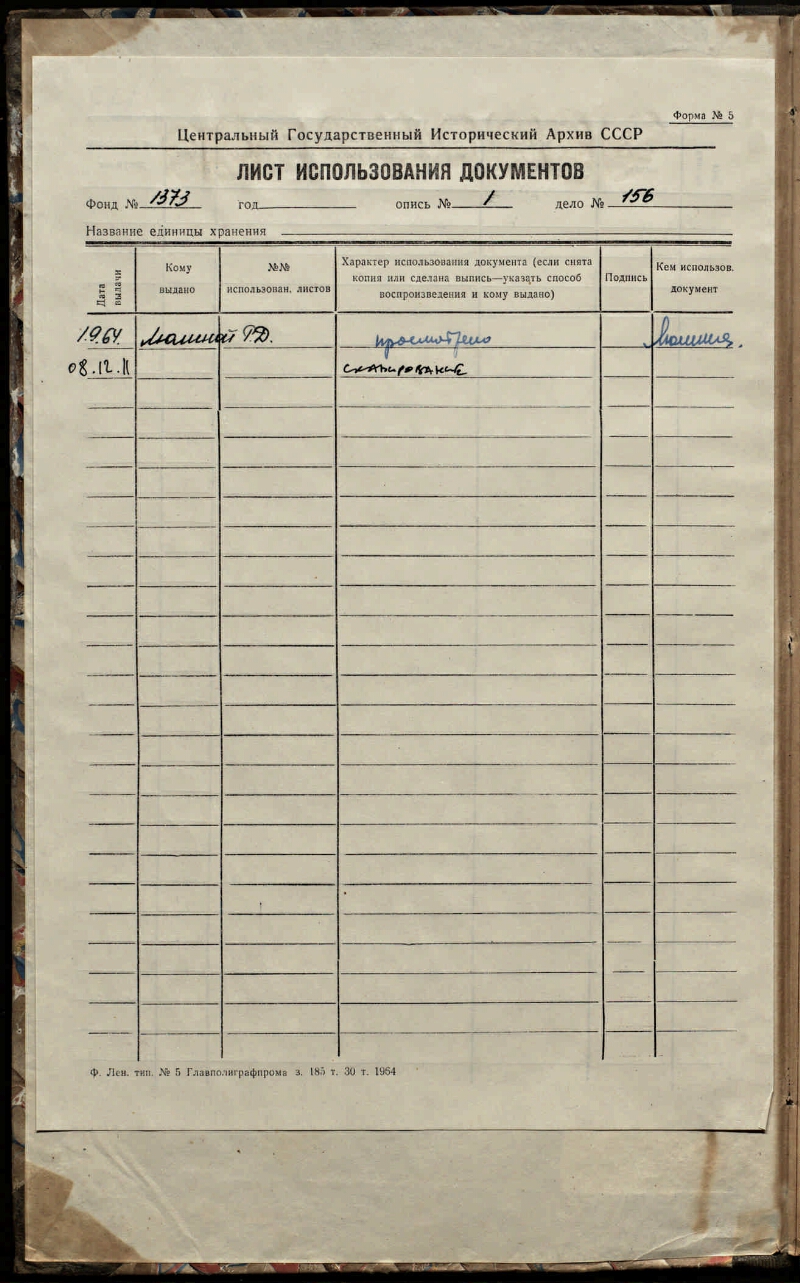 Форма № 5
Центральный Государственный Исторический Архив СССР
ЛИСТ ИСПОЛЬЗОВАНИЯ ДОКУМЕНТОВ
Фонд № 1373 год опись № 1 дело № 156
Название единицы хранения
Дата выдачи
Кому выдано
№№ использован. листов
Характер использования документа (если снята
копия или сделана выпись—указать способ
воспроизведения и кому выдано)
Подпись
Кем использов.
документ
1.9.64
08.12.11
Ф. Лен. тип. № 5 Главполиграфпрома з. 185 т. 30 т. 1964